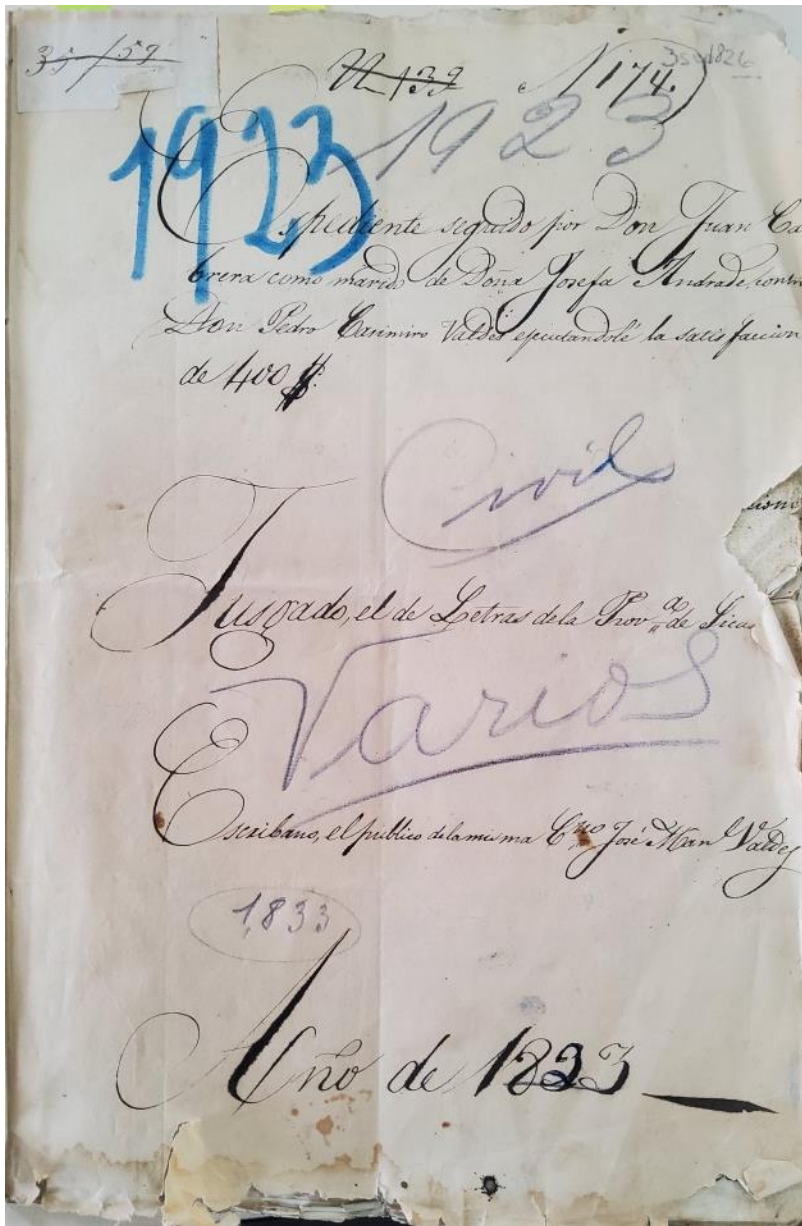 35/59
N 139 N 174.
1923
1923
Espediente seguido por Don Juan Ca
brera como marido de Doña Josefa Andrade, contra
Don Pedro Casimiro Valdes ejecutandolé la satisfaccion
de 400 $
Civil
Jusgado, el de Letras dela Prov.ª de
Varios
Escribano, el publico dela misma José Man.l Valdes
1833
Año de 1833